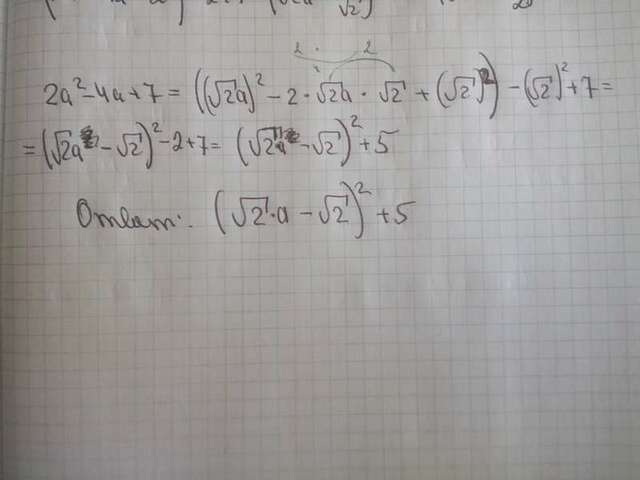 2a² - 4a + 7 = ((√2a)² - 2 · √2a · √2 + (√2)²) - (√2)² + 7 =
= (√2a - √2)² - 2 + 7 = (√2a - √2)² + 5
Ответ: (√2 · a - √2)² + 5